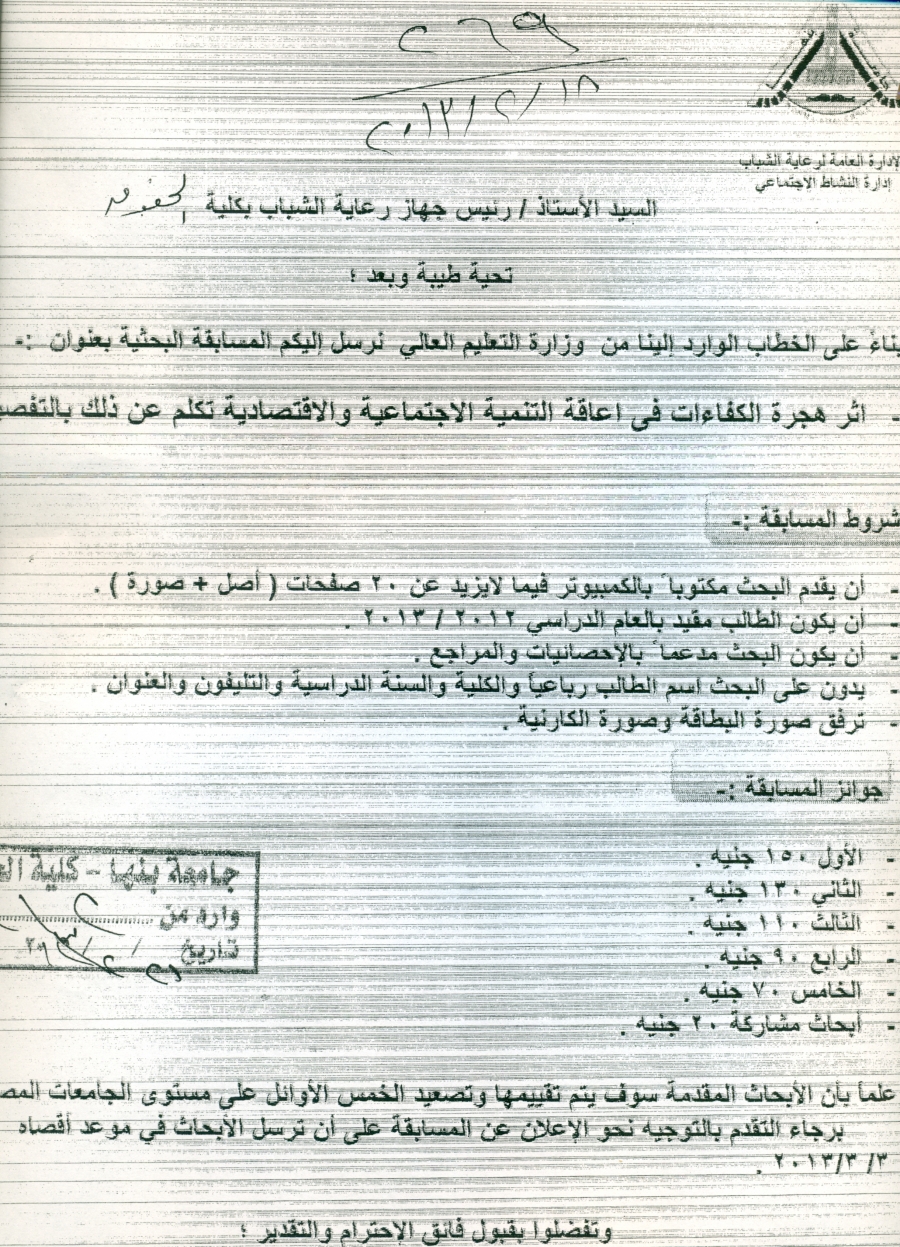 ٢٦٩
٢٠١٣/٢/١٨
الإدارة العامة لرعاية الشباب
إدارة النشاط الاجتماعي
السيد الأستاذ / رئيس جهاز رعاية الشباب بكلية الحقوق
تحية طيبة وبعد ؛
بناءً على الخطاب الوارد إلينا من وزارة التعليم العالي نرسل إليكم المسابقة البحثية بعنوان :-
- اثر هجرة الكفاءات في اعاقة التنمية الاجتماعية والاقتصادية تكلم عن ذلك بالتفصي
شروط المسابقة :-
- أن يقدم البحث مكتوباً بالكمبيوتر فيما لايزيد عن ٢٠ صفحات ( أصل + صورة ) .
- أن يكون الطالب مقيد بالعام الدراسي ٢٠١٢ / ٢٠١٣ .
- أن يكون البحث مدعماً بالإحصائيات والمراجع .
- يدون على البحث اسم الطالب رباعياً والكلية والسنة الدراسية والتليفون والعنوان .
- ترفق صورة البطاقة وصورة الكارنية .
جوائز المسابقة :-
- الأول ١٥٠ جنيه .
- الثاني ١٣٠ جنيه .
- الثالث ١١٠ جنيه .
- الرابع ٩٠ جنيه .
- الخامس ٧٠ جنيه .
- أبحاث مشاركة ٢٠ جنيه .
جامعة بنها - كلية الع
وارد من
تاريخ
علماً بأن الأبحاث المقدمة سوف يتم تقييمها وتصعيد الخمس الأوائل على مستوى الجامعات المص
برجاء التقدم بالتوجيه نحو الإعلان عن المسابقة على أن ترسل الأبحاث في موعد أقصاه
٣/ ٢٠١٣/٣ .
وتفضلوا بقبول فائق الإحترام والتقدير ؛